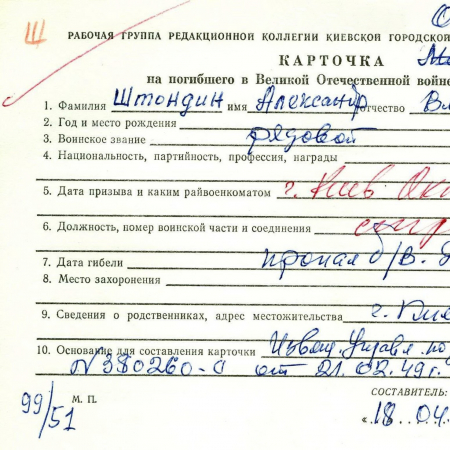 Ш
РАБОЧАЯ ГРУППА РЕДАКЦИОННОЙ КОЛЛЕГИИ КИЕВСКОЙ ГОРОДСКОЙ
КАРТОЧКА
на погибшего в Великой Отечественной войне
1. Фамилия Штондин имя Александр отчество Вл
2. Год и место рождения
3. Воинское звание рядовой
4. Национальность, партийность, профессия, награды
5. Дата призыва и каким райвоенкоматом г. Киев Ок
6. Должность, номер воинской части и соединения
7. Дата гибели пропал б/в.
8. Место захоронения
9. Сведения о родственниках, адрес местожительства г. Кие
10. Основание для составления карточки Извещ. Управл. по
N 380260-с от 21.02.49г.
99/51 М. П. СОСТАВИТЕЛЬ:
«18.04.